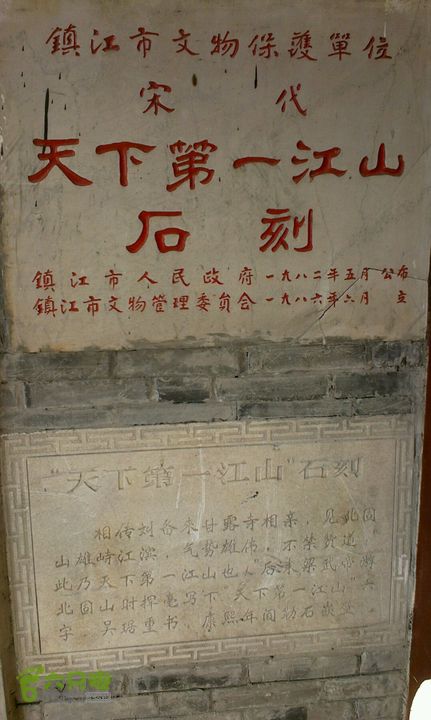 鎮江市文物保護單位
宋代
天下第一江山
石刻
鎮江市人民政府一九八二年五月公布
鎮江市文物管理委員会一九八六年六月立
"天下第一江山"石刻
相传刘备来甘露寺相亲，见北固
山雄峙江滨，气势雄伟，不禁赞道，
此乃天下第一江山也人"后来梁武帝
北固山时挥毫写下"天下第一江山"六
字 吴琚重书，康熙年间勒石嵌
六只脚